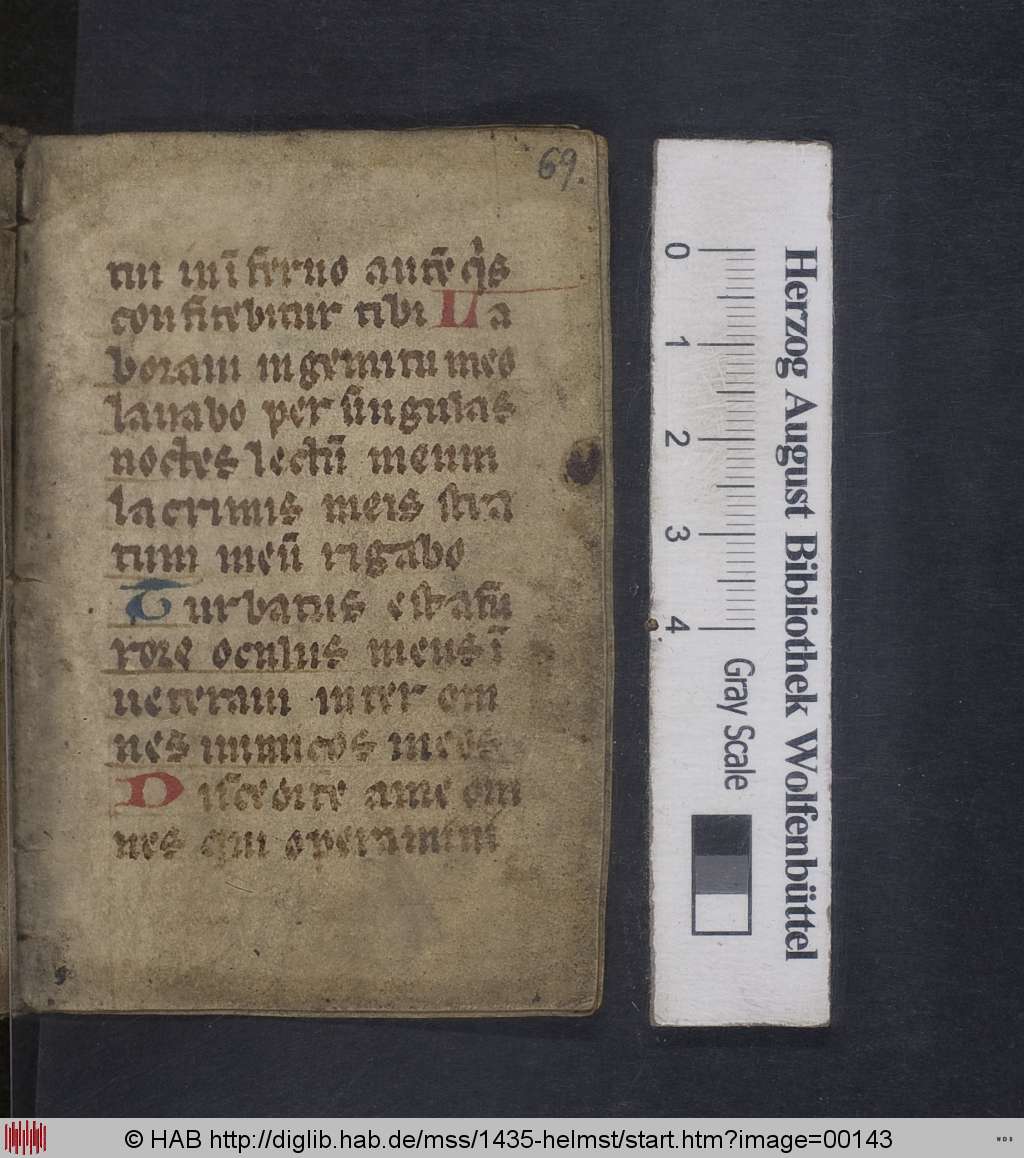 69.
tui in ī ferno autē qͥs
confitebitur tibi La
boraui in gemitu meo
lauabo per singulas
noctes lectū meum
lacrimis meis stra
tum meū rigabo
Turbatus est a fu
rore oculus meus ī
ueteraui inter om
nes inimicos meos
Discedite a me om
nes qui operamini
0
1
2
3
4
Gray Scale
Herzog August Bibliothek Wolfenbüttel
© HAB http://diglib.hab.de/mss/1435-helmst/start.htm?image=00143